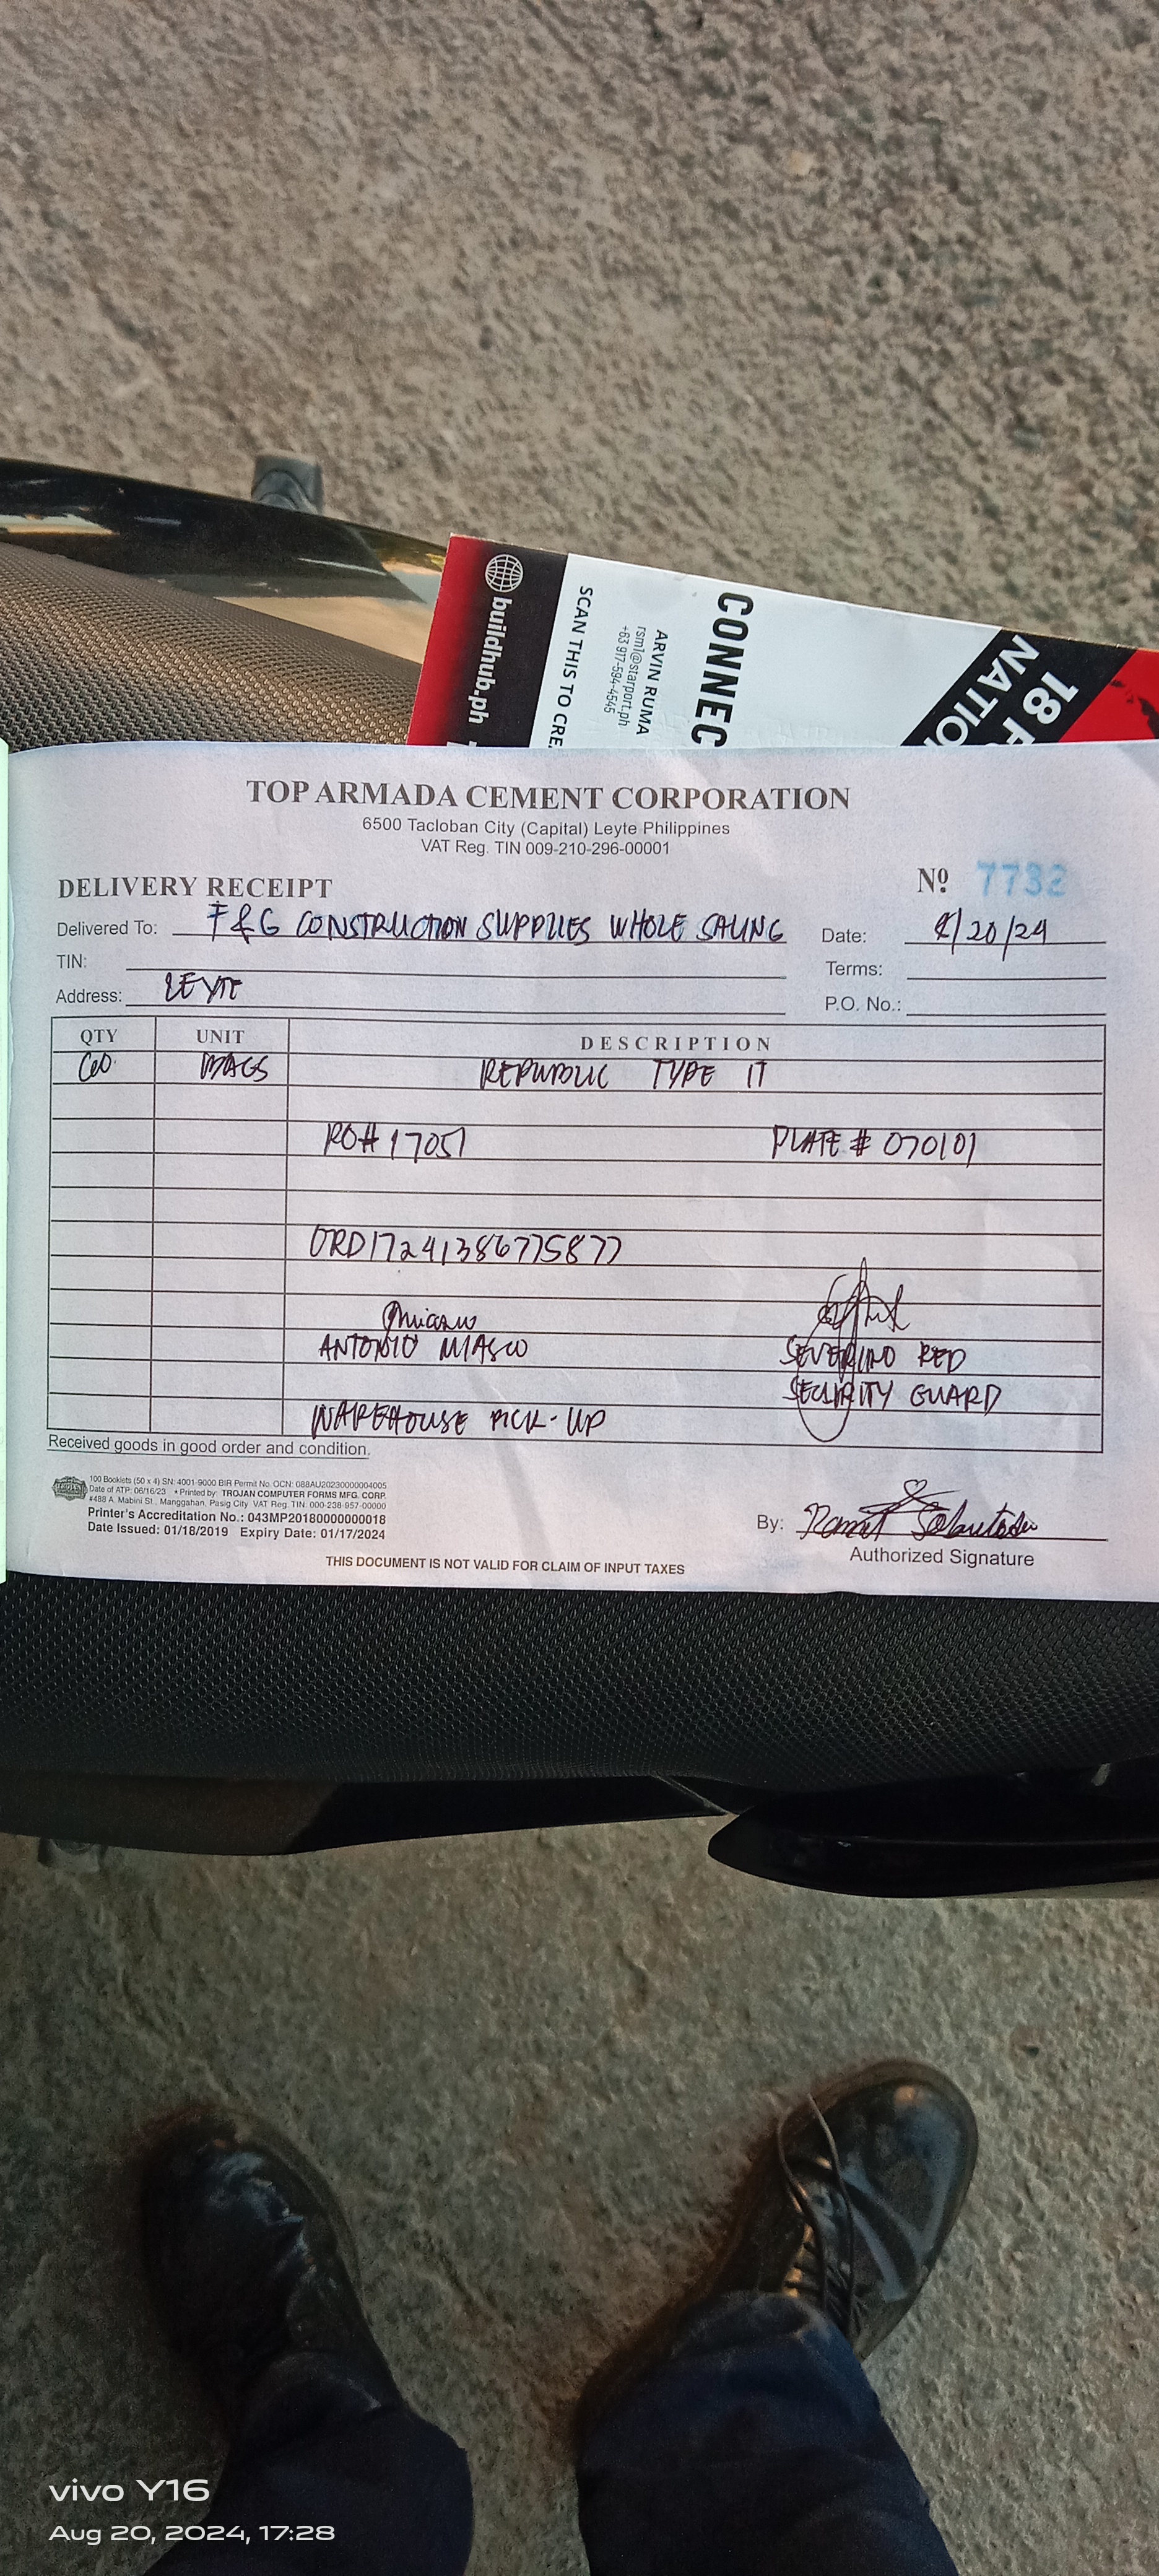 buildhub.ph
SCAN THIS TO CRE
ARVIN RUMA
rsm1@starport.ph
+63 917-594-4545
CONNEC
18 P
NATIO
TOP ARMADA CEMENT CORPORATION
6500 Tacloban City (Capital) Leyte Philippines
VAT Reg. TIN 009-210-296-00001
DELIVERY RECEIPT
Nº 7732
Delivered To: F&G CONSTRUCTION SUPPLIES WHOLE SALING Date: 8/20/24
TIN: Terms:
Address: LEYTE P.O. No.:
QTY UNIT DESCRIPTION
BAGS REPUBLIC TYPE 1T
RO# 17051 PLATE # 070101
ORD17241386775877
ANTONIO MIASCO SEVERINO RED
SECURITY GUARD
WAREHOUSE PICK-UP
Received goods in good order and condition.
100 Booklets (50 x 4) SN: 4001-9000 BIR Permit No. OCN: 088AU20230000004005
Date of ATP: 06/16/23 • Printed by: TROJAN COMPUTER FORMS MFG. CORP.
#488 A. Mabini St., Manggahan, Pasig City VAT Reg. TIN: 000-238-957-00000
Printer's Accreditation No.: 043MP20180000000018
Date Issued: 01/18/2019 Expiry Date: 01/17/2024
By:
Authorized Signature
THIS DOCUMENT IS NOT VALID FOR CLAIM OF INPUT TAXES
vivo Y16
Aug 20, 2024, 17:28